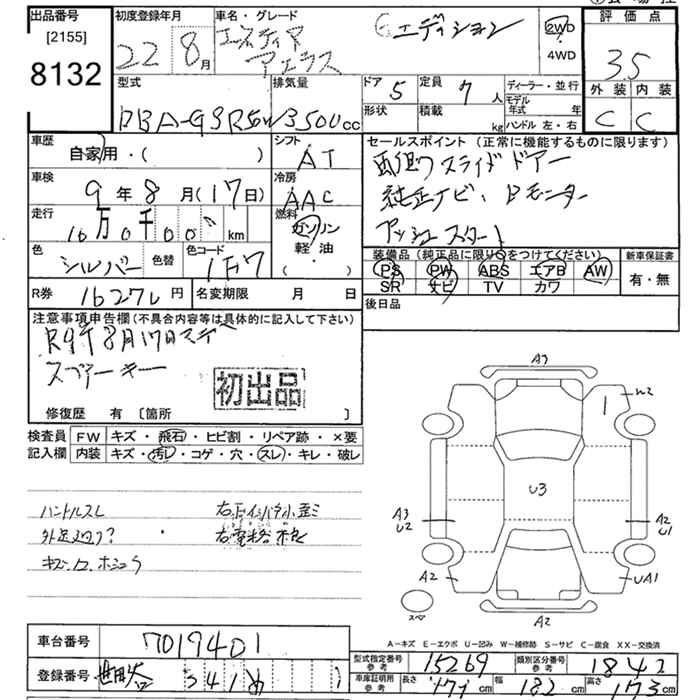 出品番号 初度登録年月 車名・グレード 評価点
[2155]
8132
22年 8月 エスティマ アエラス Gエディション 2WD 4WD 3.5
外装 内装
C C
型式 排気量 ドア 5 定員 7人 ディーラー・並行
DBA-GSR50W 3500cc 形状 積載 kg モデル年式 年
ハンドル 左・右
車歴 自家用・( ) シフト AT セールスポイント (正常に機能するものに限ります)
両側スライドドアー
車検 9年 8月(17日) 冷房 AAC 純正ナビ・Bモニター
走行 10万0千00 km 燃料 ガソリン 軽油 ( ) プッシュスタート
色 シルバー 色替 色コード 1F7
装備品 (純正品に限り○をつけてください) 新車保証書
PS PW ABS エアB AW 有・無
SR ナビ TV カワ
R券 16270円 名変期限 月 日 後日品
注意事項申告欄(不具合内容等は具体的に記入して下さい)
R9年8月17日まで
スペアーキー
初出品
修復歴 有 〔箇所 〕
検査員記入欄 FW キズ・飛石・ヒビ割・リペア跡・×要
内装 キズ・汚レ・コゲ・穴・スレ・キレ・破レ
ハンドルスレ
外足廻り?
A3
W2
U3
A3 U2
A2 U1
A2
UA1
スペア
A2
A-キズ E-エクボ U-凹み W-補修跡 S-サビ C-腐食 XX-交換済
車台番号 7019401
登録番号
型式指定番号 参考 15269 類別区分番号 参考 1842
車庫証明用 参考 長さ cm 幅 182 cm 高さ 173 cm